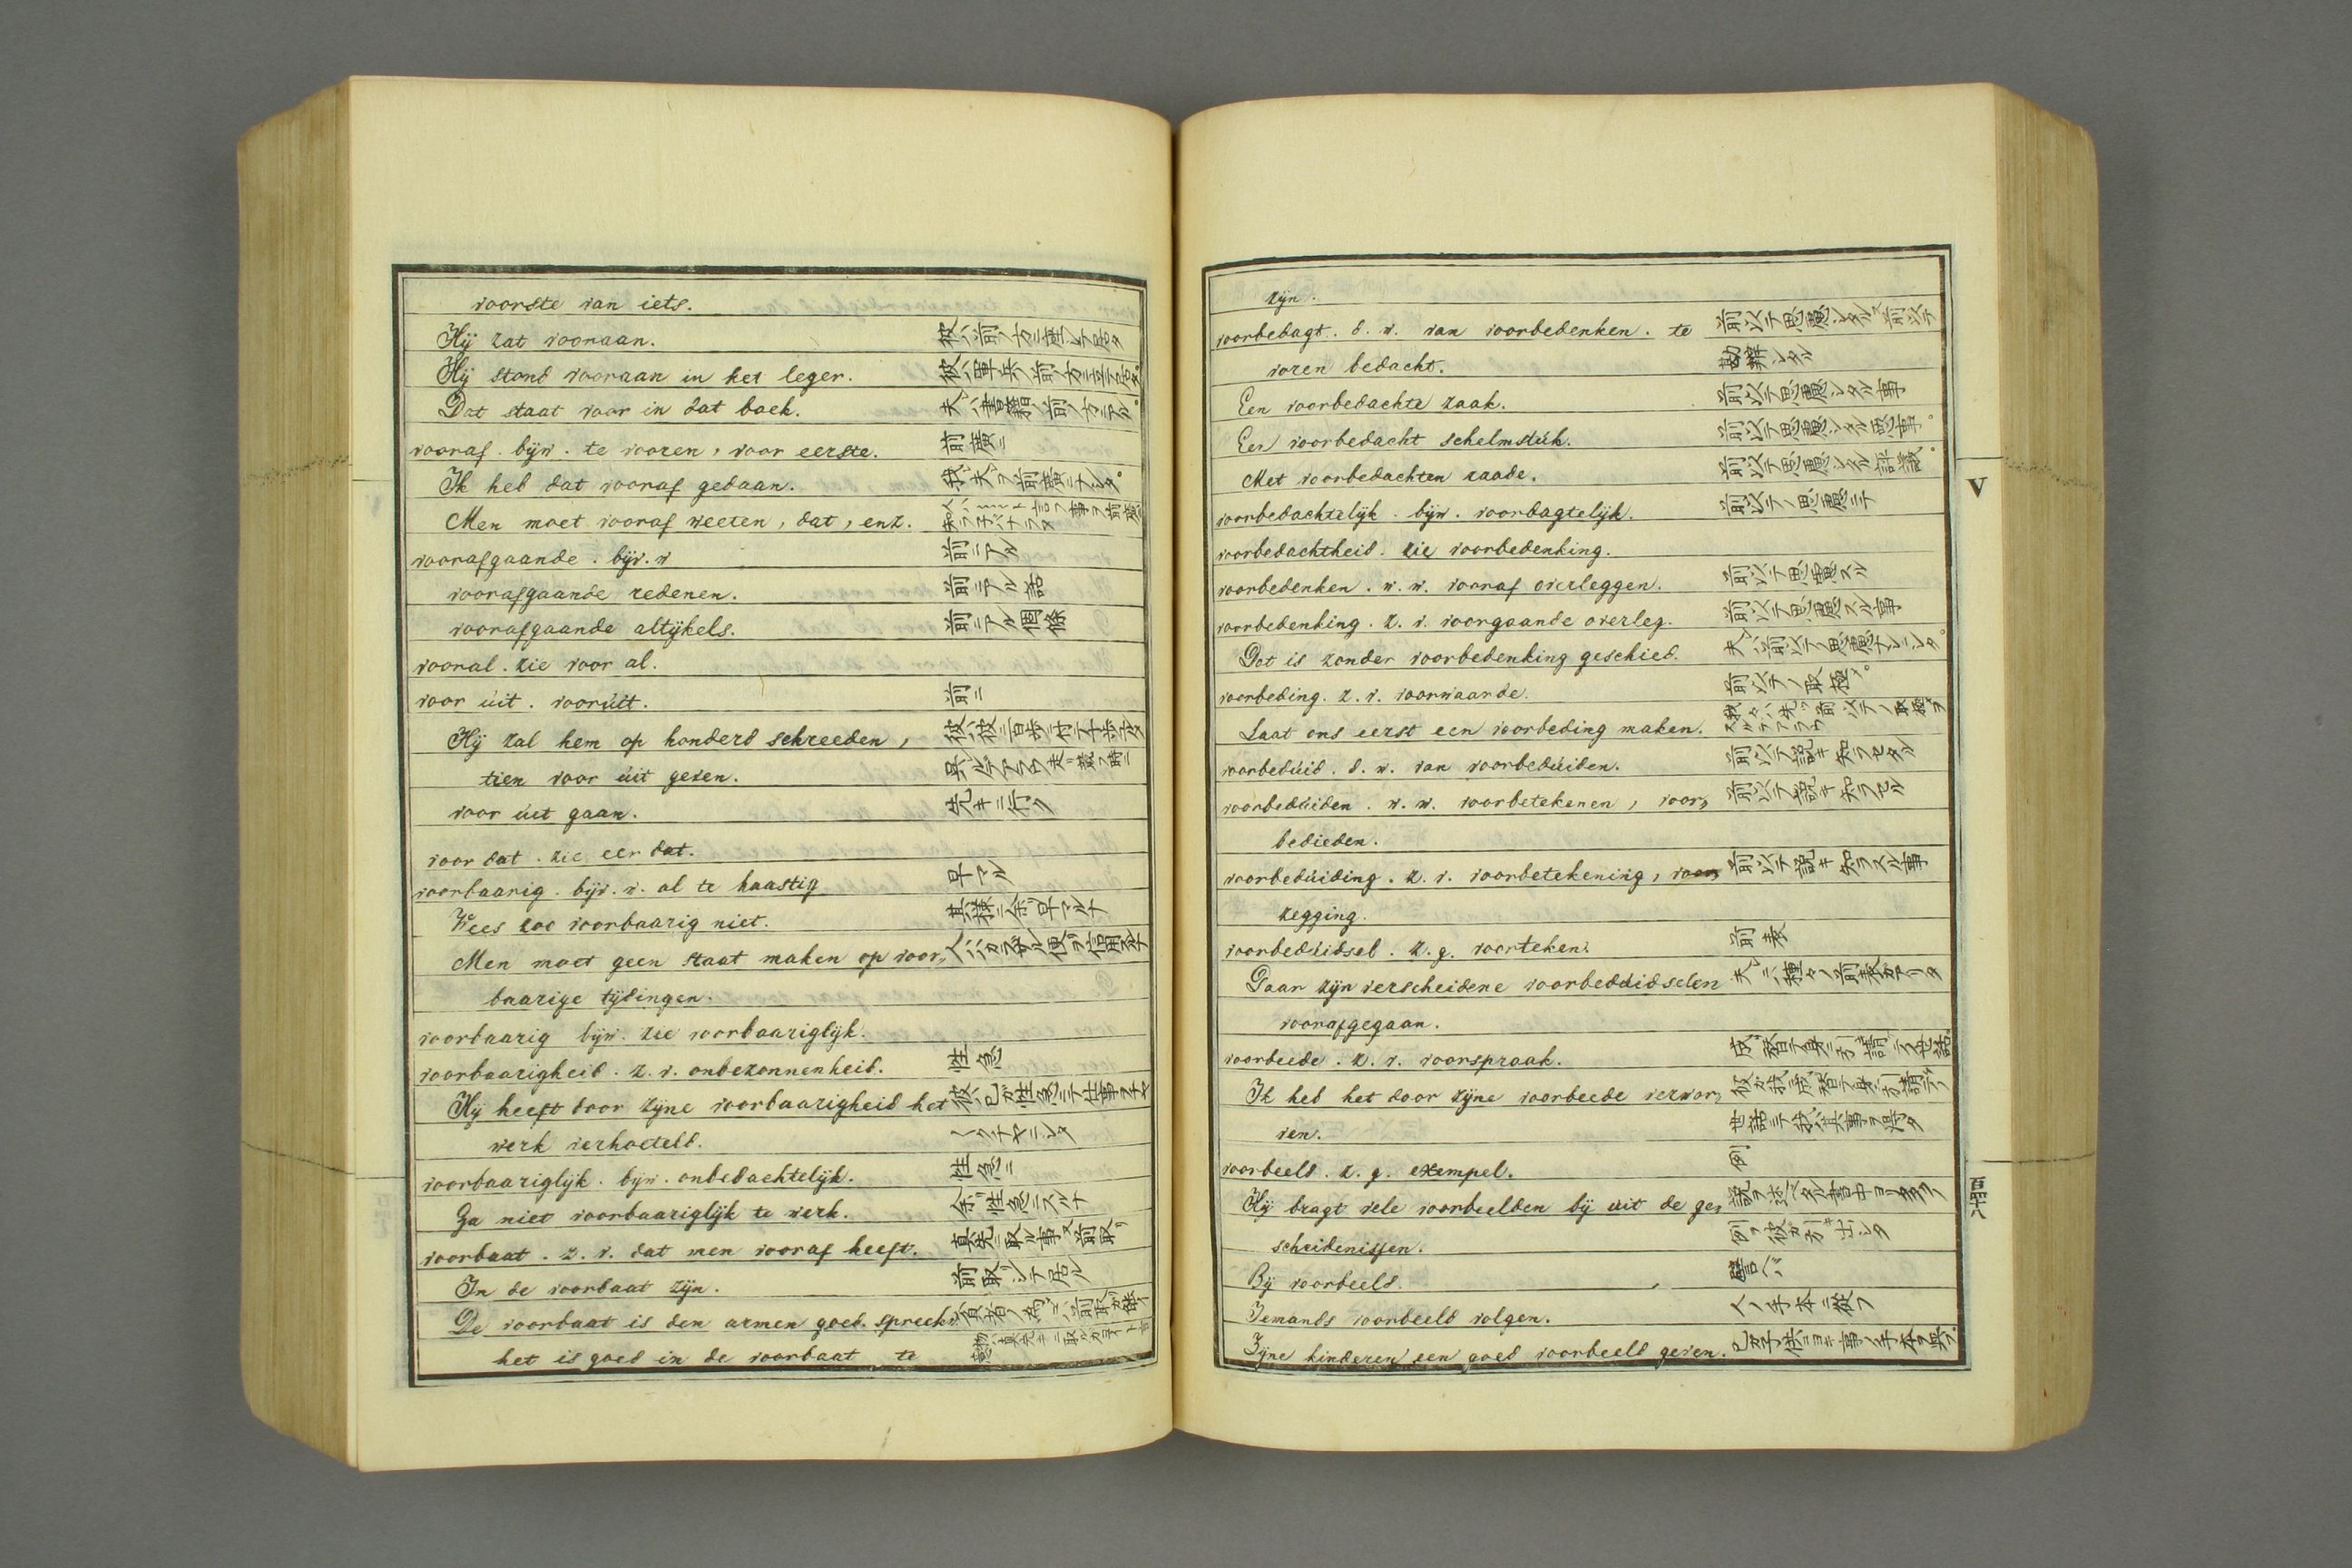 voorste van iets.
Hij zat vooraan. 彼ハ前ノ方ニ座シテ居タ
Hij stond vooraan in het leger. 彼ハ軍兵ノ前ノ方ニ立テ居タ。
Dat staat voor in dat boek. 夫ハ書籍ノ前ノ方ニアル。
vooraf. bijw. te vooren, voor eerste. 前廣ニ
Ik heb dat vooraf gedaan. 我ハ夫ヲ前廣ニナシタ。
Men moet vooraf weeten, dat, enz.
voorafgaande. bijv. w 前ニアル
voorafgaande redenen. 前ニアル話
voorafgaande altijkels. 前ニアル個條
vooral. zie voor al.
voor úit. voorúit. 前ニ
Hij zal hem op honderd schreeden,
tien voor úit geven.
voor úit gaan. 先キニ行ク
voor dat. zie eer dat.
voorbaarig. bijv. w. al te haastig 早マル
Wees zoo voorbaarig niet. 其様ニ余リ早マルナ
Men moet geen staat maken op voor„
baarige tijdingen.
voorbaarig bijw. zie voorbaariglijk.
voorbaarigheid. z. v. onbezonnenheid. 性急
Hij heeft door zijne voorbaarigheid het 彼ハ己ガ性急ニテ仕事ヲチヤ
werk verhoeteld. 〱クチヤニシタ
voorbaariglijk. bijw. onbedachtelijk. 性急ニ
Ga niet voorbaariglijk te werk. 余リ性急ニスルナ
voorbaat. z. v. dat men vooraf heeft. 真先ニ取ル事又前取リ
In de voorbaat zijn. 前取リシテ居ル
De voorbaat is den armen goed. spreekw.
het is goed in de voorbaat te
zijn.
voorbedagt. d. w. van voorbedenken. te 前以テ思慮シタル又前以テ
voren bedacht. 勘辨シタル
Een voorbedachte zaak. 前以テ思慮シタル事
Een voorbedacht schelmstúk. 前以テ思慮シタル惡事。
Met voorbedachten raade. 前以テ思慮シタル評議。
voorbedachtelijk. bijw. voorbagtelijk. 前以テノ思慮ニテ
voorbedachtheid. zie voorbedenking.
voorbedenken. w. w. vooraf overleggen. 前以テ思慮スル
voorbedenking. z. v. voorgaande overleg. 前以テ思慮スル事
Dat is zonder voorbedenking geschied. 夫ハ前以テノ思慮ナシニシタ。
voorbeding. z. v. voorwaarde. 前以テノ取極リ。
Laat ons eerst een voorbeding maken. 我々ハ先ヅ前以テノ取極ヲ
スルデアラフ
voorbedúid. d. w. van voorbedúiden. 前以テ説キ知ラセタル
voorbedúiden. w. w. voorbetekenen, voor„ 前以テ説キ知ラセル
bedieden.
voorbedúiding. z. v. voorbetekening, voor„ 前以テ説キ知ラスル事
zegging.
voorbedúidsel. z. g. voorteken. 前表
Daar zijn verscheidene voorbedúidselen 夫ニハ種々ノ前表ガアリタ
voorafgegaan.
voorbeede. z. v. voorspraak.
Ik heb het door zijne voorbeede verwor„
ven. 世話ニテ我ハ其事ヲ得タ
voorbeeld. z. g. exempel. 例
Hij bragt vele voorbeelden bij uit de ge„
scheidenissen. 例ヲ彼ガ引キ出シタ
Bij voorbeeld. 譬ヘバ
Iemands voorbeeld volgen. 人ノ手本ニ從フ
Zijne kinderen een goed voorbeeld geven. 己ガ子供ニヨキ事ノ手本ヲ與フ。
V